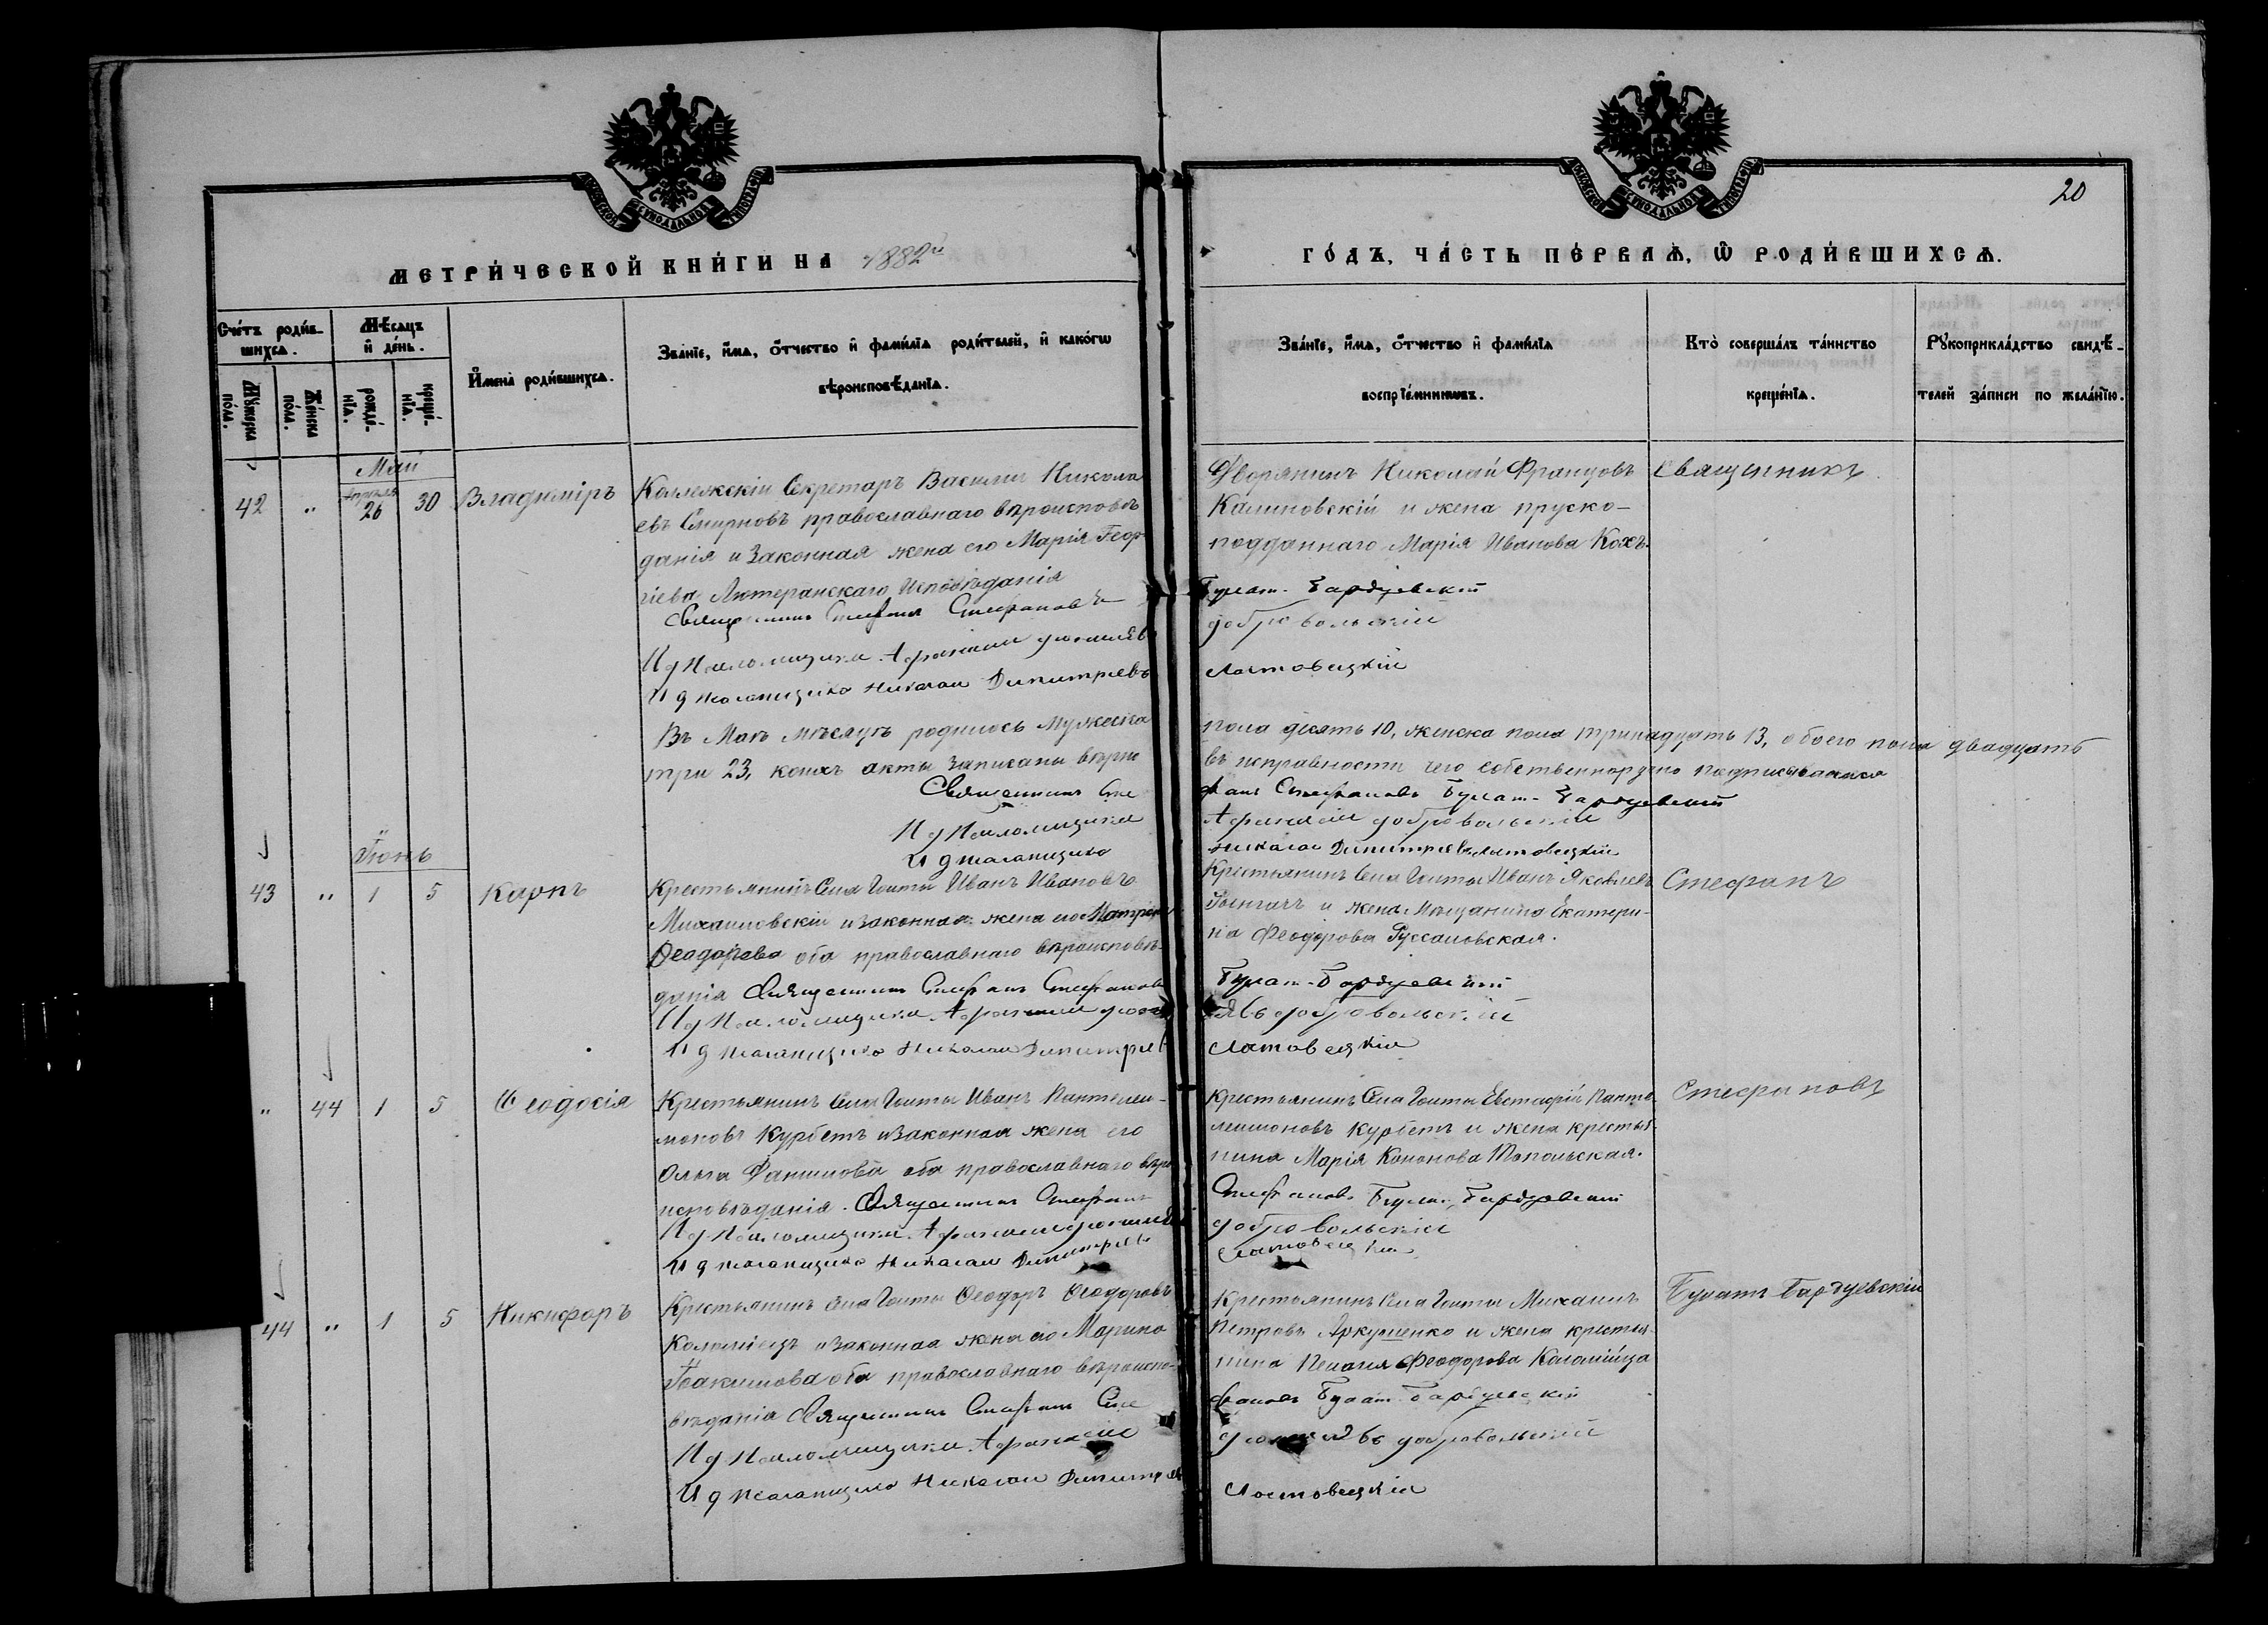 МОСКОВСКОЙ СѴНОДАЛЬНОЙ ТИПОГРАФІИ
МОСКОВСКОЙ СѴНОДАЛЬНОЙ ТИПОГРАФІИ
20
МЕТРИ́ЧЕСКОЙ КНИ́ГИ НА 1882й
ГО́ДЪ, ЧА́СТЬ ПЕ́РВАѦ, Ѿ РОДИ́ВШИХСѦ.
Сче́тъ роди́в-
шихсѧ.
Мѣ́сѧцъ
и де́нь.
И҆мена̀ роди́вшихсѧ.
Зва́нїе, и҆́мѧ, ѻ҆́тчество и҆ фами́лїѧ роди́телей, и҆ како́гѡ
вѣроисповѣ́данїѧ.
Му́жеска
по́ла.
Же́нска
по́ла.
рожде́-
нїѧ.
креще́-
нїѧ.
Зва́нїе, и҆́мѧ, ѻ҆́тчество и҆ фами́лїѧ
воспрїе́мниковъ.
Кто̀ соверша́лъ та́инство
креще́нїѧ.
Рꙋкоприкла́дство свидѣ́-
телей за́писи по жела́нїю.
Май
42 " Апреля 26 30 Владиміръ
Коллежскій Секретарь Василій Никола
евъ Смирновъ православнаго вѣроисповѣ
данія и законная жена его Марія Геор
гіева Лютеранскаго Исповѣданія
Священникъ Стефанъ Стефановъ
И д Псаломщика Афанасій
И д псаломщика Николай Димитріевъ
Дворянинъ Николай Францовъ
Калиновскій и жена пруско-
подданнаго Марія Иванова Кохъ.
Булат-Бардуевскій
Добровольскій
Лотовецкій
Священникъ
Въ Маѣ мѣсяцѣ родилось мужеска
три 23, коихъ акты записаны вѣрно
Священникъ Сте
И д Псаломщика
И д псаломщика
пола десять 10, женска пола тринадцать 13, обоего пола двадцать
въ исправности чего собственноручно подписываемся
фанъ Стефановъ Булат-Бардуевскій
Афанасій Добровольскій
Николай Димитріевъ Лотовецкій
Іюнь
43 " 1 5 Карпъ
Крестьянинъ Села Гоиты Иванъ Ивановъ
Михаиловскій и законная жена его Матрона
Феодорова оба православнаго вѣроисповѣ-
данія Священникъ Стефанъ Стефановъ
И д Псаломщика Афанасій
И д псаломщика Николай Димитріев
Крестьянинъ Села Гоиты Иванъ Яковлевъ
и жена Мещанина Екатери-
на Феодорова Руссановская.
Булат-Бардуевскій
Добровольскій
Лотовецкій
Стефанъ
" 44 1 5 Феодосія
Крестьянинъ Села Гоиты Иванъ Пантелеи-
моновъ Курбетъ и законная жена его
Ольга Данилова оба православнаго вѣро
исповѣданія. Священникъ Стефанъ
И д Псаломщика Афанасій
И д псаломщика Николай Димитріевъ
Крестьянинъ Села Гоиты Евстафій Панте
леимоновъ Курбетъ и жена крестья-
нина Марія Кононова Топольская.
Стефановъ Булат-Бардуевскій
Добровольскій
Лотовецкій
Стефановъ
44 " 1 5 Никифоръ
Крестьянинъ Села Гоиты Феодоръ Феодоровъ
Коломіецъ и законная жена его Марина
Іоакимова оба православнаго вѣроиспо-
вѣданія Священникъ Стефанъ Сте
И д Псаломщика Афанасій
И д псаломщика Николай Димитріев
Крестьянинъ Села Гоиты Михаилъ
Петровъ Аркушенко и жена крестья-
нина Пелагія Феодорова Коломійца
фановъ Булат-Бардуевскій
Добровольскій
Лотовецкій
Булатъ-Бардуевскій